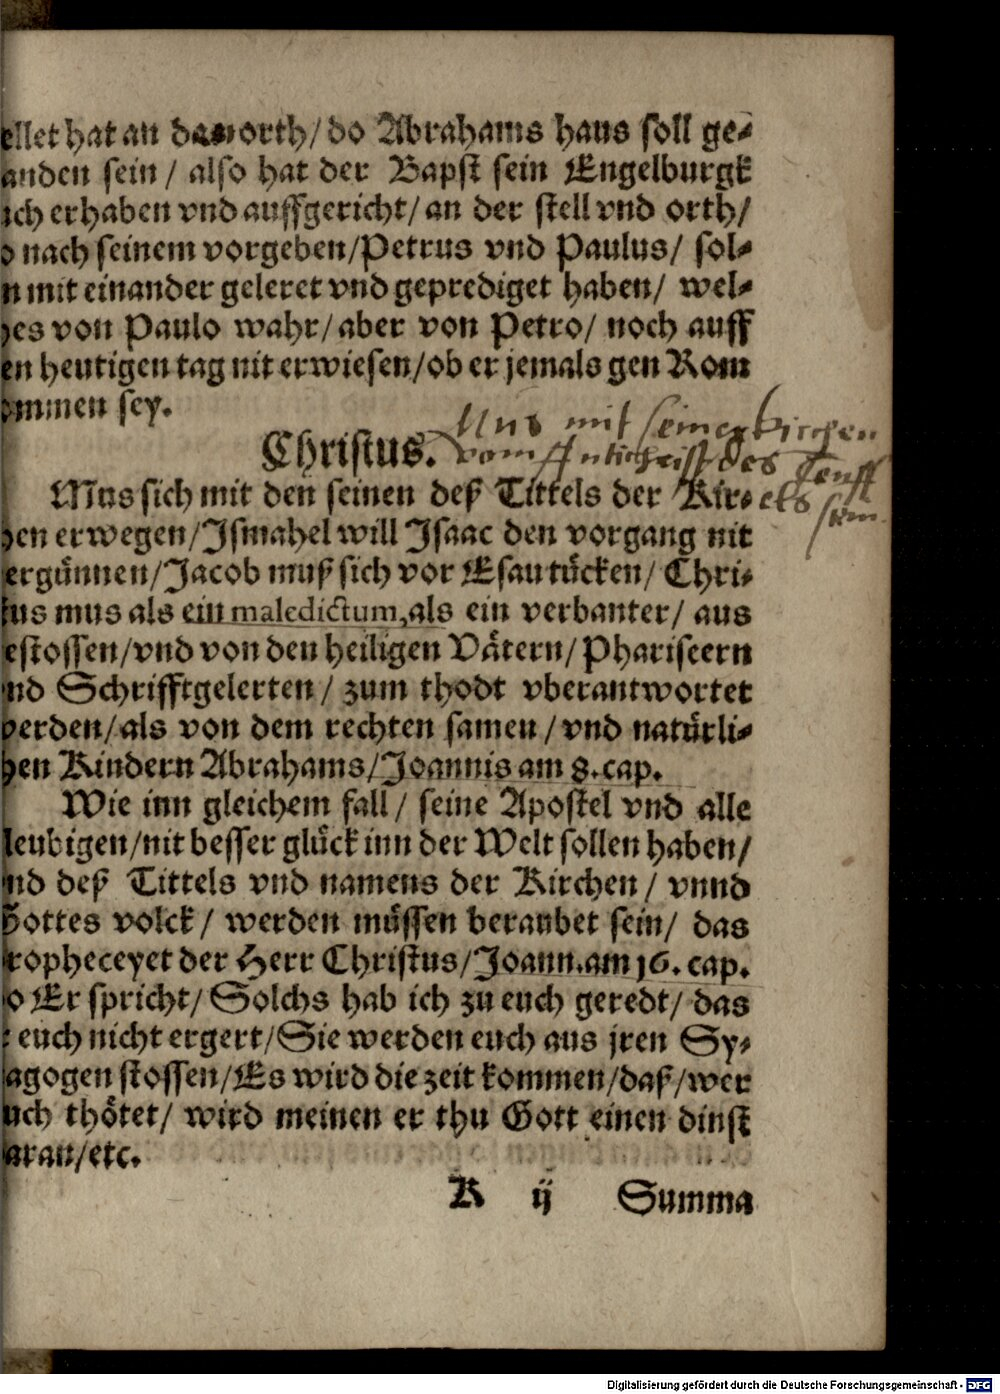 ellet hat an das orth/ do Abrahams haus soll ge⸗
anden sein/ also hat der Bapst sein Engelburgk
ich erhaben vnd auffgericht/ an der stell vnd orth/
o nach seinem vorgeben/ Petrus vnd Paulus/ sol⸗
n mit einander geleret vnd geprediget haben/ wel⸗
hes von Paulo wahr/ aber von Petro/ noch auff
en heutigen tag nit erwiesen/ ob er jemals gen Rom
ommen sey.
Mus mit seiner kirchen
Christus. vom Antichrist des Teuff
Mus sich mit den seinen deß Tittels der Kir⸗ els sein
hen erwegen/ Ismahel will Isaac den vorgang nit
ergünnen/ Jacob muß sich vor Esau tücken/ Chri⸗
tus mus als ein maledictum, als ein verbanter/ aus
estossen/ vnd von den heiligen Vätern/ Phariseern
nd Schrifftgelerten/ zum thodt vberantwortet
werden/ als von dem rechten samen/ vnd natürli⸗
hen Kindern Abrahams/ Joannis am 8. cap.
Wie inn gleichem fall/ seine Apostel vnd alle
leubigen/ nit besser glück inn der Welt sollen haben/
nd deß Tittels vnd namens der Kirchen/ vnnd
Gottes volck/ werden müssen beraubet sein/ das
ropheceyet der Herr Christus/ Joann. am 16. cap.
o Er spricht/ Solchs hab ich zu euch geredt/ das
r euch nicht ergert/ Sie werden euch aus jren Sy⸗
agogen stossen/ Es wird die zeit kommen/ daß/ wer
uch thötet/ wird meinen er thu Gott einen dinst
aran/ etc.
K ij Summa
Digitalisierung gefördert durch die Deutsche Forschungsgemeinschaft - DFG